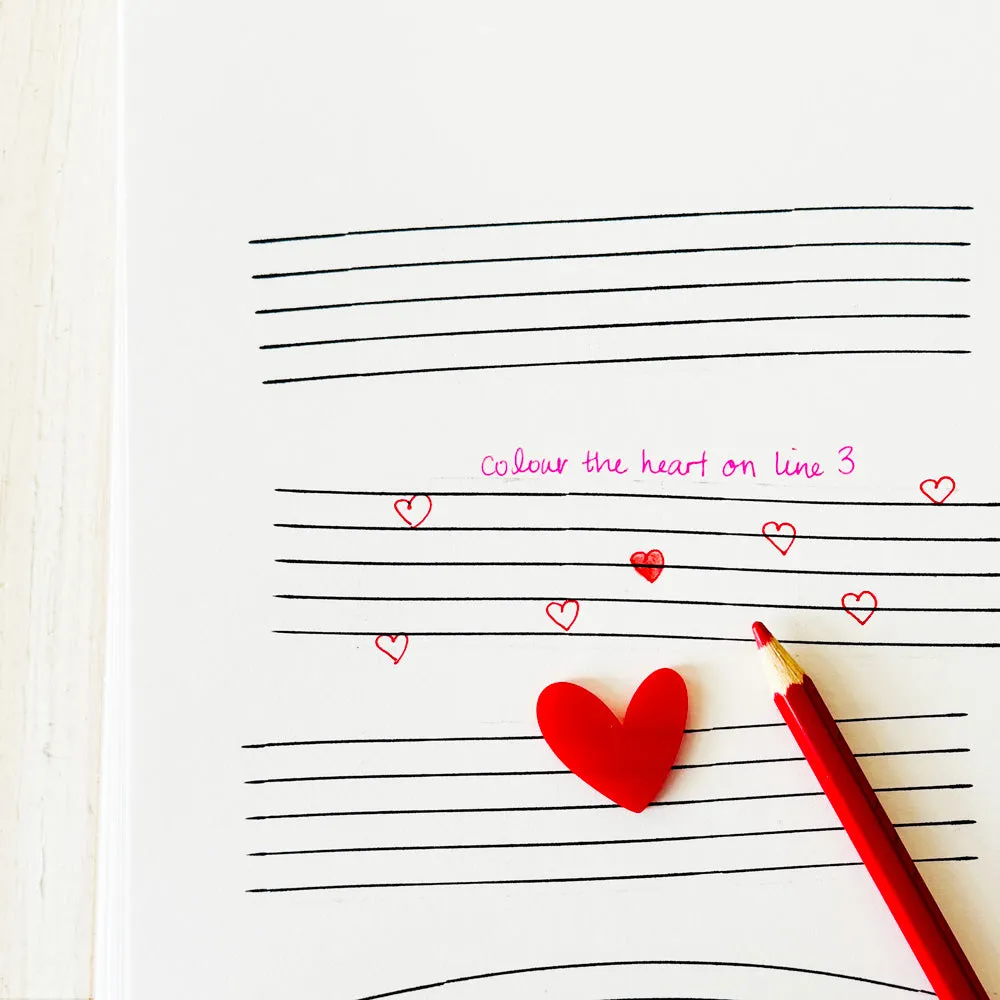 colour the heart on line 3